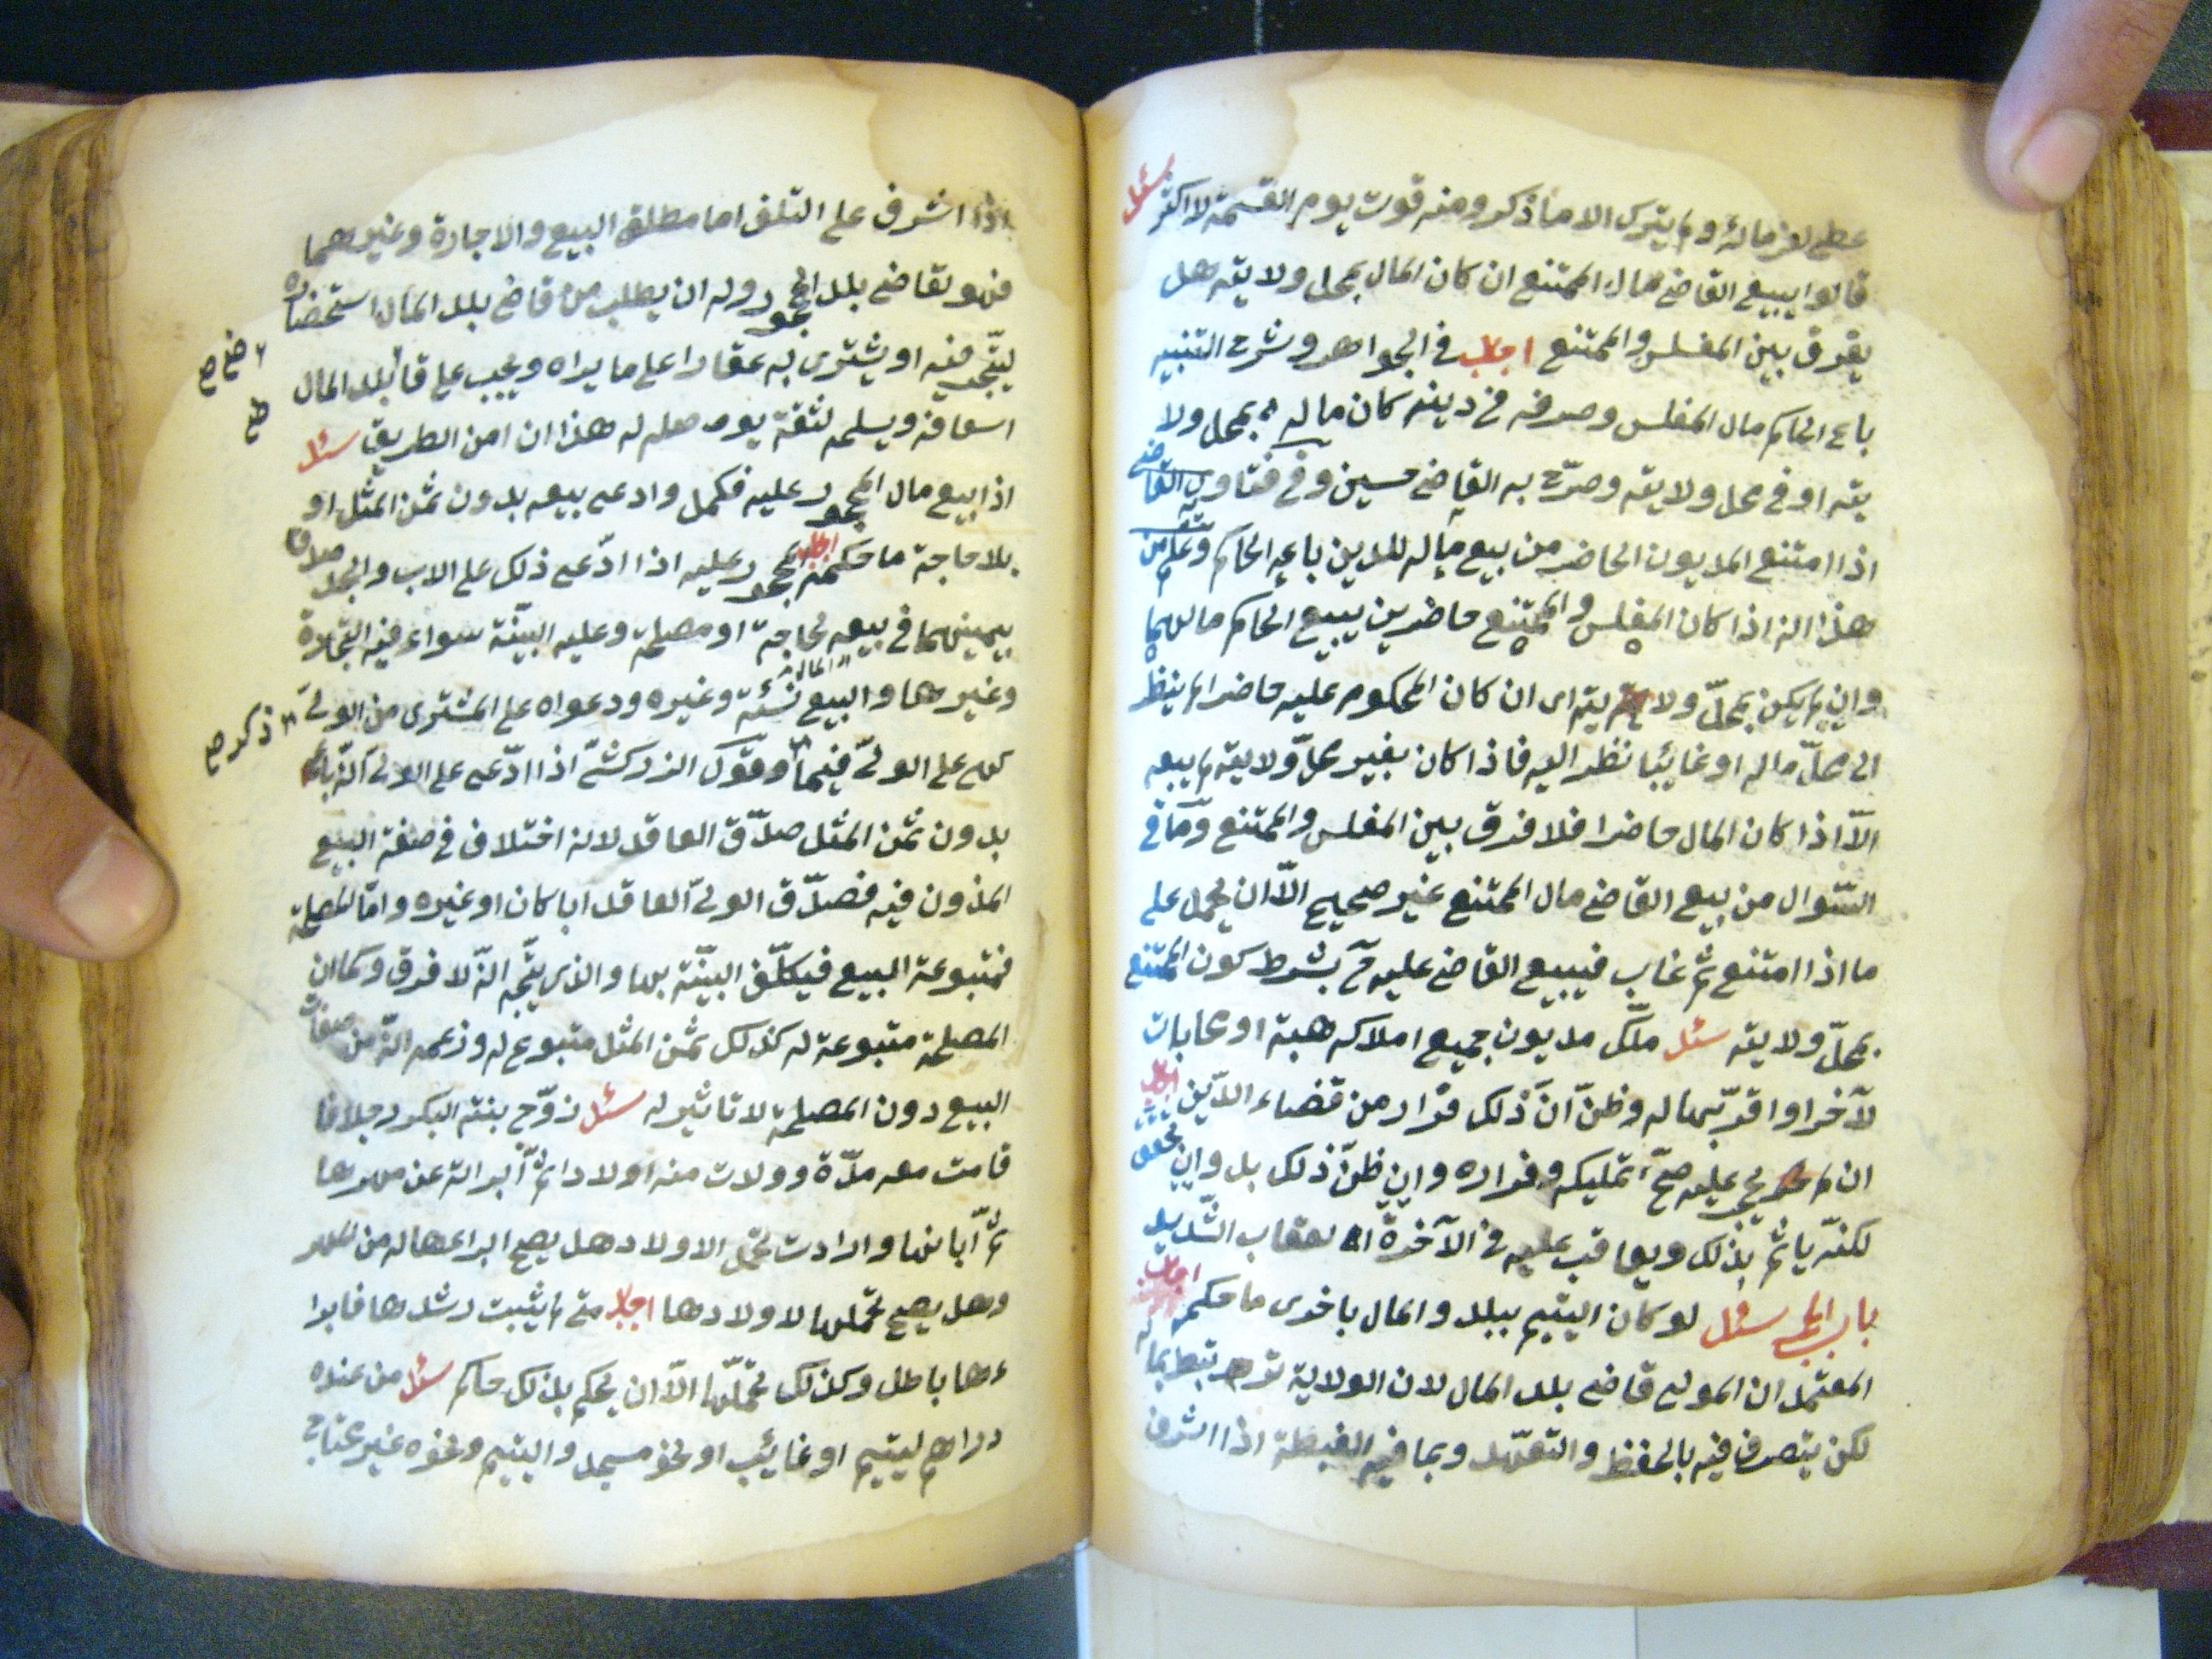 عطى لغرمائه ولم يترك الا ما ذكر ومنه قوت يوم القسمة لا اكثر سئل
قالوا يبيع القاضي مال الممتنع ان كان المال بمحل ولايته هل
يفرق بين المفلس والممتنع اجاب في الجواهر وشرح التنبيه
باع الحاكم مال المفلس وصرفه في دينه كان ماله بمحل ولا
يته او في محل ولايته وصرّح به القاضي حسين وفي فتاوى القاضي
اذا امتنع المديون الحاضر من بيع ماله للدين باعه الحاكم وعلم من
هذا انه اذا كان المفلس والممتنع حاضرين يبيع الحاكم مالهما
وان لم يكن بمحلّ ولايته اى ان كان المحكوم عليه حاضرا لم ينظر
الى محلّ ماله او غائبا نظر اليه فاذا كان بغير محلّ ولايته لم يبعه
الّا اذا كان المال حاضرا فلا فرق بين المفلس والممتنع وما في
السّؤال من بيع القاضي مال الممتنع غير صحيح الّا ان يحمل على
ما اذا امتنع ثم غاب فيبيع القاضي عليه ح بشرط كون الممتنع
بمحلّ ولايته سئل ملّك مديون جميع املاكه هبة او محابات
لآخر او اقرّ بماله وظنّ انّ ذلك فرار من قضاء الدّين اجاب
ان لم يحجر عليه صحّ تمليكه وفراره وان ظنّ ذلك بل وان تحقق
لكنّه ياثم بذلك ويعاقب عليه في الآخرة العقاب الشّديد
باب الحجر سئل لو كان اليتيم ببلد والمال باخرى ما حكمه اجاب
المعتمد ان الولي قاضي بلد المال لان الولاية ترتبط بماله
لكن يتصرف فيه بالحفظ والتعهّد وبما فيه الغبطة اذا اشرف
اذا اشرف على التلف اما مطلق البيع والاجارة وغيرهما
فهو لقاضي بلد المحجور وله ان يطلب من قاضي بلد المال استحضاره
ليتّجر فيه او يشترى به عقارا على ما يراه ويجب على قا بلد المال
ضي صح
اسعافه ويسلمه لثقة يوصله له هذا ان امن الطريق سئل
اذا بيع مال المحجور عليه فكمل وادعى بيعه بدون ثمن المثل او
بلا حاجة ما حكمه اجاب المحجور عليه اذا ادّعى ذلك على الاب والجد صدقا
بيمينهما في بيعه لحاجة او مصلحة وعليه البيّنة سواء فيه التجارة
وغيرها والبيع نسئة وغيره ودعواه على المشترى من الولىّ
كهي على الولىّ فيما وقول الزركشىّ اذا ادّعى على الولى انّه باع
ذكر صح
بدون ثمن المثل صدّق العاقد لانه اختلاف في صفة البيع
المذون فيه فصدّق الولىّ العاقد ابا كان او غيره وامّا المصلحة
فمتبوعة البيع فيكلّف البيّنة بها والذى يتّجه انّه لا فرق وكما ان
المصلحة متبوعة له كذلك ثمن المثل متبوع له وزعمه انّه من صفات
البيع دون المصلحة لا تاثير له سئل زوّج بنته البكر رجلا فا
قامت معه مدّة وولدت منه اولادا ثمّ ابرأته عن مهرها
ثمّ ابانها وارادت تحمّل الاولاد هل يصح ابراءها له من المهر
وهل يصح تحمّلها لاولادها اجاب متى لم يثبت رشدها فابرا
ءها باطل وكذلك تحمّلها الّا ان يحكم بذلك حاكم سئل من عنده
دراهم ليتيم او غائب او نحو مسجد واليتيم ونحوه غير محتاج